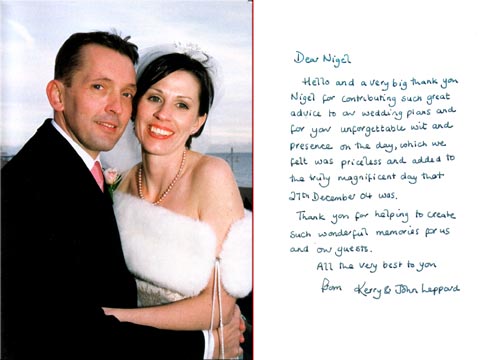 Dear Nigel
Hello and a very big thank you
Nigel for contributing such great
advice to our wedding plans and
for your unforgettable wit and
presence on the day, which we
felt was priceless and added to
the truly magnificent day that
27th December 04 was.
Thank you for helping to create
such wonderful memories for us
and our guests.
All the very best to you
from Kerry & John Leppard